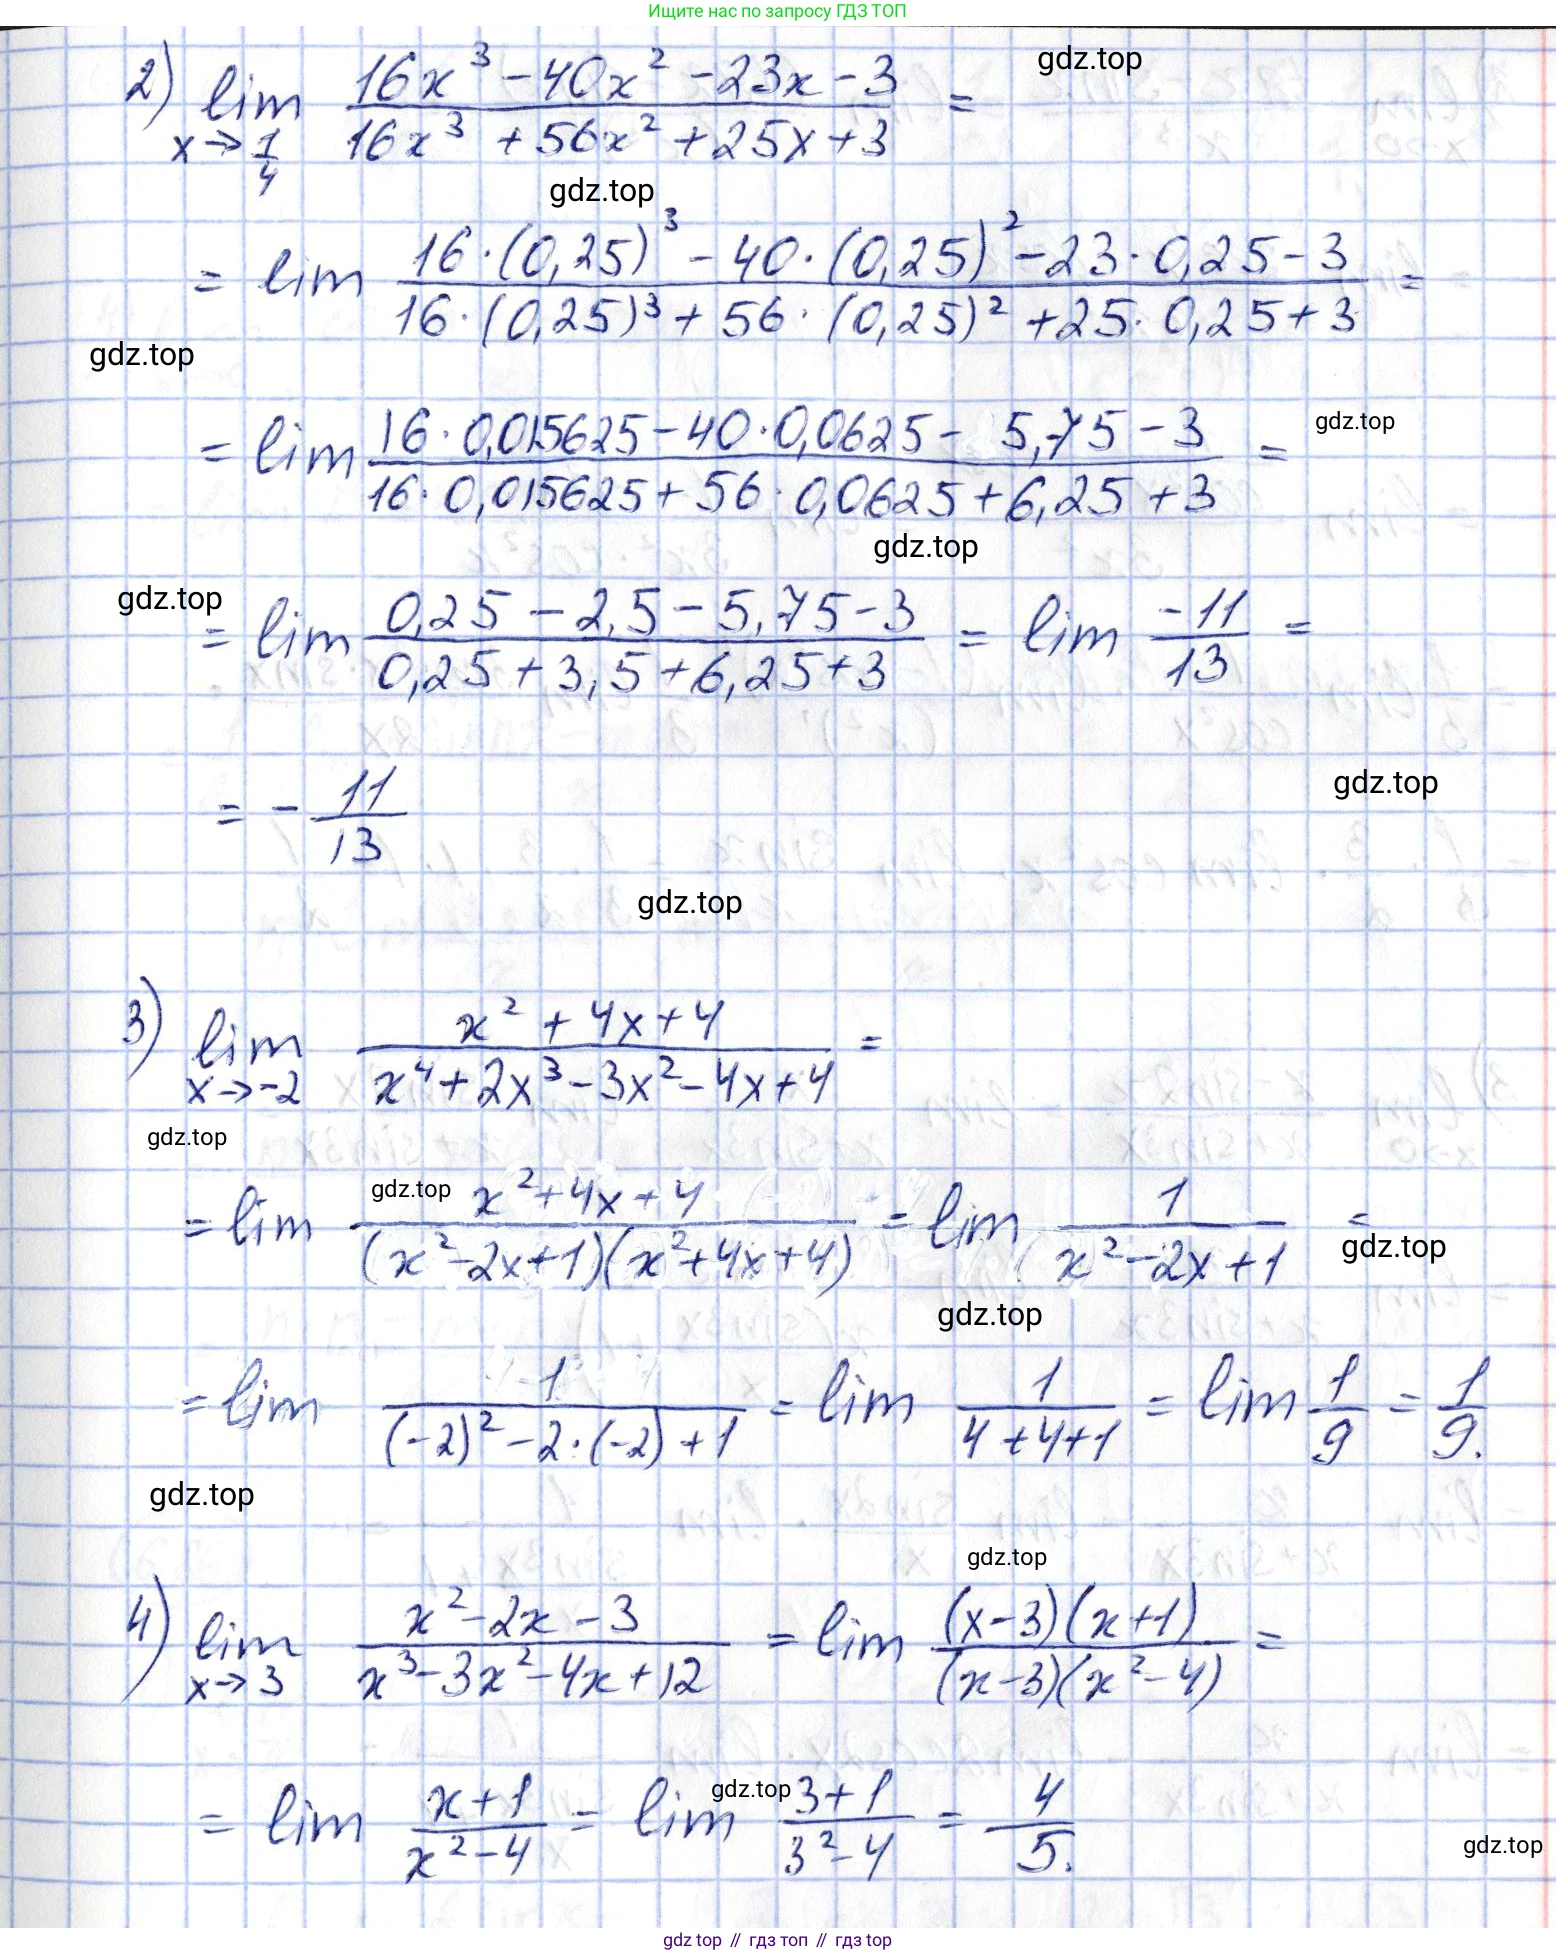 Ищите нас по запросу ГДЗ ТОП
2) lim x→1/4 (16x³ - 40x² - 23x - 3)/(16x³ + 56x² + 25x + 3) =
gdz.top
gdz.top
= lim (16·(0,25)³ - 40·(0,25)² - 23·0,25 - 3)/(16·(0,25)³ + 56·(0,25)² + 25·0,25 + 3) =
gdz.top
= lim (16·0,015625 - 40·0,0625 - 5,75 - 3)/(16·0,015625 + 56·0,0625 + 6,25 + 3) =
gdz.top
gdz.top
gdz.top
= lim (0,25 - 2,5 - 5,75 - 3)/(0,25 + 3,5 + 6,25 + 3) = lim -11/13 =
= - 11/13
gdz.top
gdz.top
3) lim x→-2 (x² + 4x + 4)/(x⁴ + 2x³ - 3x² - 4x + 4) =
gdz.top
= lim (x² + 4x + 4)/((x² - 2x + 1)(x² + 4x + 4)) = lim 1/(x² - 2x + 1) =
gdz.top
gdz.top
gdz.top
= lim 1/((-2)² - 2·(-2) + 1) = lim 1/(4 + 4 + 1) = lim 1/9 = 1/9.
gdz.top
gdz.top
4) lim x→3 (x² - 2x - 3)/(x³ - 3x² - 4x + 12) = lim ((x - 3)(x + 1))/((x - 3)(x² - 4)) =
= lim (x + 1)/(x² - 4) = lim (3 + 1)/(3² - 4) = 4/5.
gdz.top
gdz.top
gdz top // гдз топ // гдз top